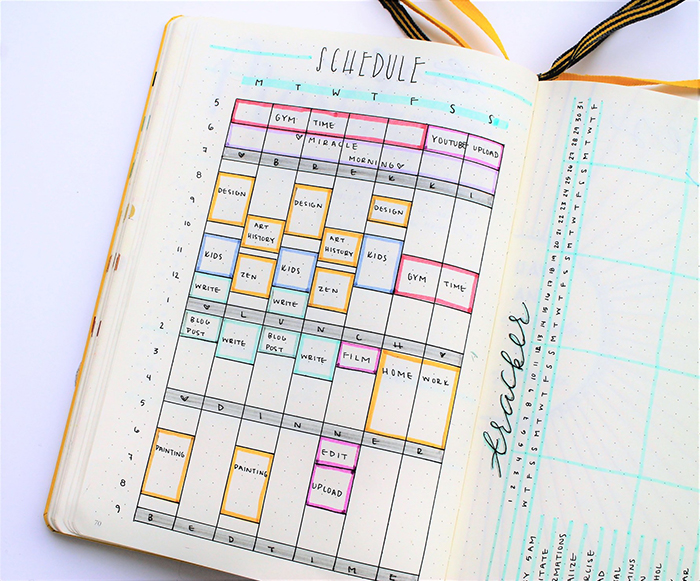 SCHEDULE
M T W T F S S
5
GYM TIME
6
YOUTUBE UPLOAD
♡ MIRACLE
7
MORNING ♡
♡ B R E K K I
8
DESIGN DESIGN DESIGN
9
10
ART HISTORY ART HISTORY
11
KIDS KIDS KIDS
ZEN ZEN GYM TIME
12
WRITE WRITE
1
♡ L U N C H ♡
2
BLOG POST BLOG POST
WRITE WRITE FILM HOME WORK
3
4
5
♡ D I N N E R
6
PAINTING PAINTING EDIT
7
UPLOAD
8
9
B E D T I M E
70
tracker
1 2 3 4 5 6 7 8 9 10 11 12 13 14 15 16 17 18 19 20 21 22 23 24 25 26 27 28 29 30 31
W T F S S M T W T F S S M T W T F S S M T W T F S S M T W T F
5 AM